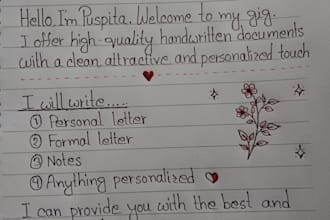 Hello, I'm Puspita. Welcome to my gig.
I offer high-quality handwritten documents
with a clean, attractive and personalized touch
I will write.....
① Personal letter
② Formal letter
③ Notes
④ Anything personalized
I can provide you with the best and